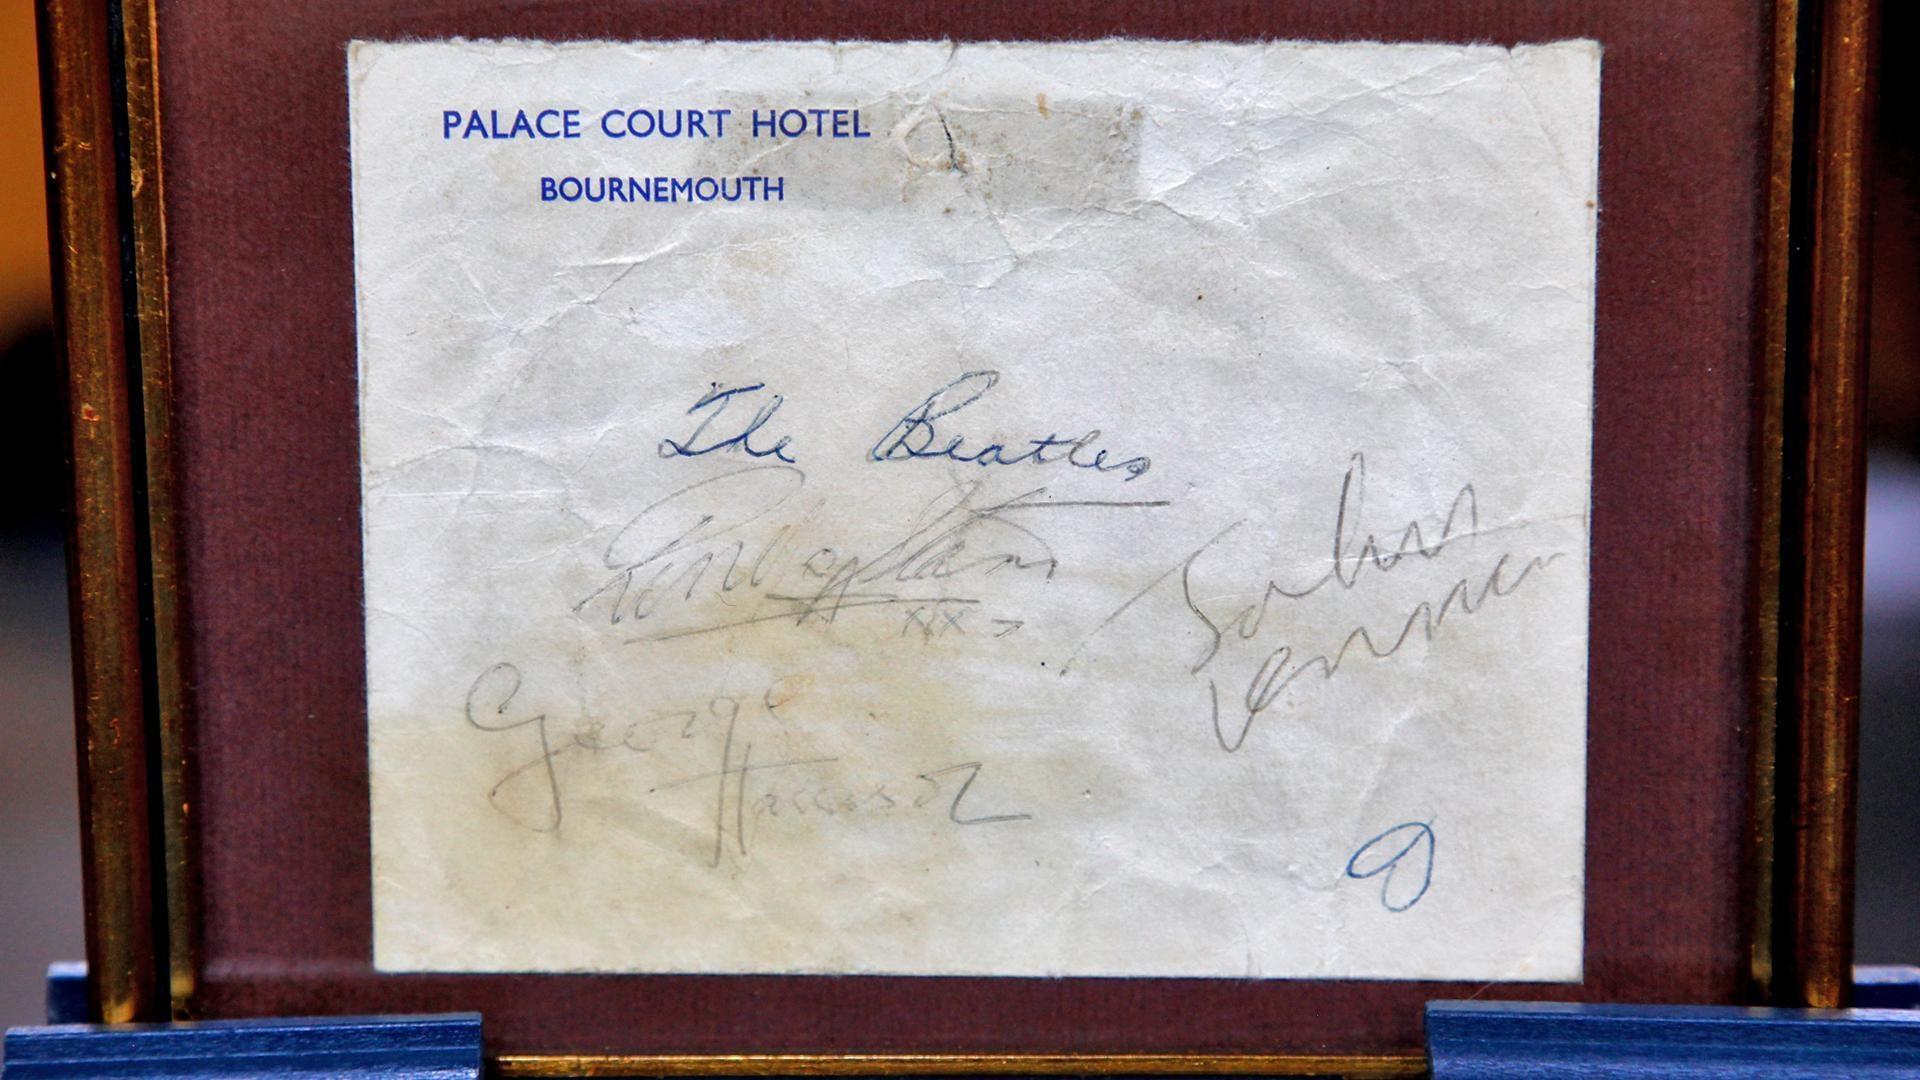 PALACE COURT HOTEL
BOURNEMOUTH
The Beatles
Ringo Starr
xxx
John
Lennon
George
Harrison